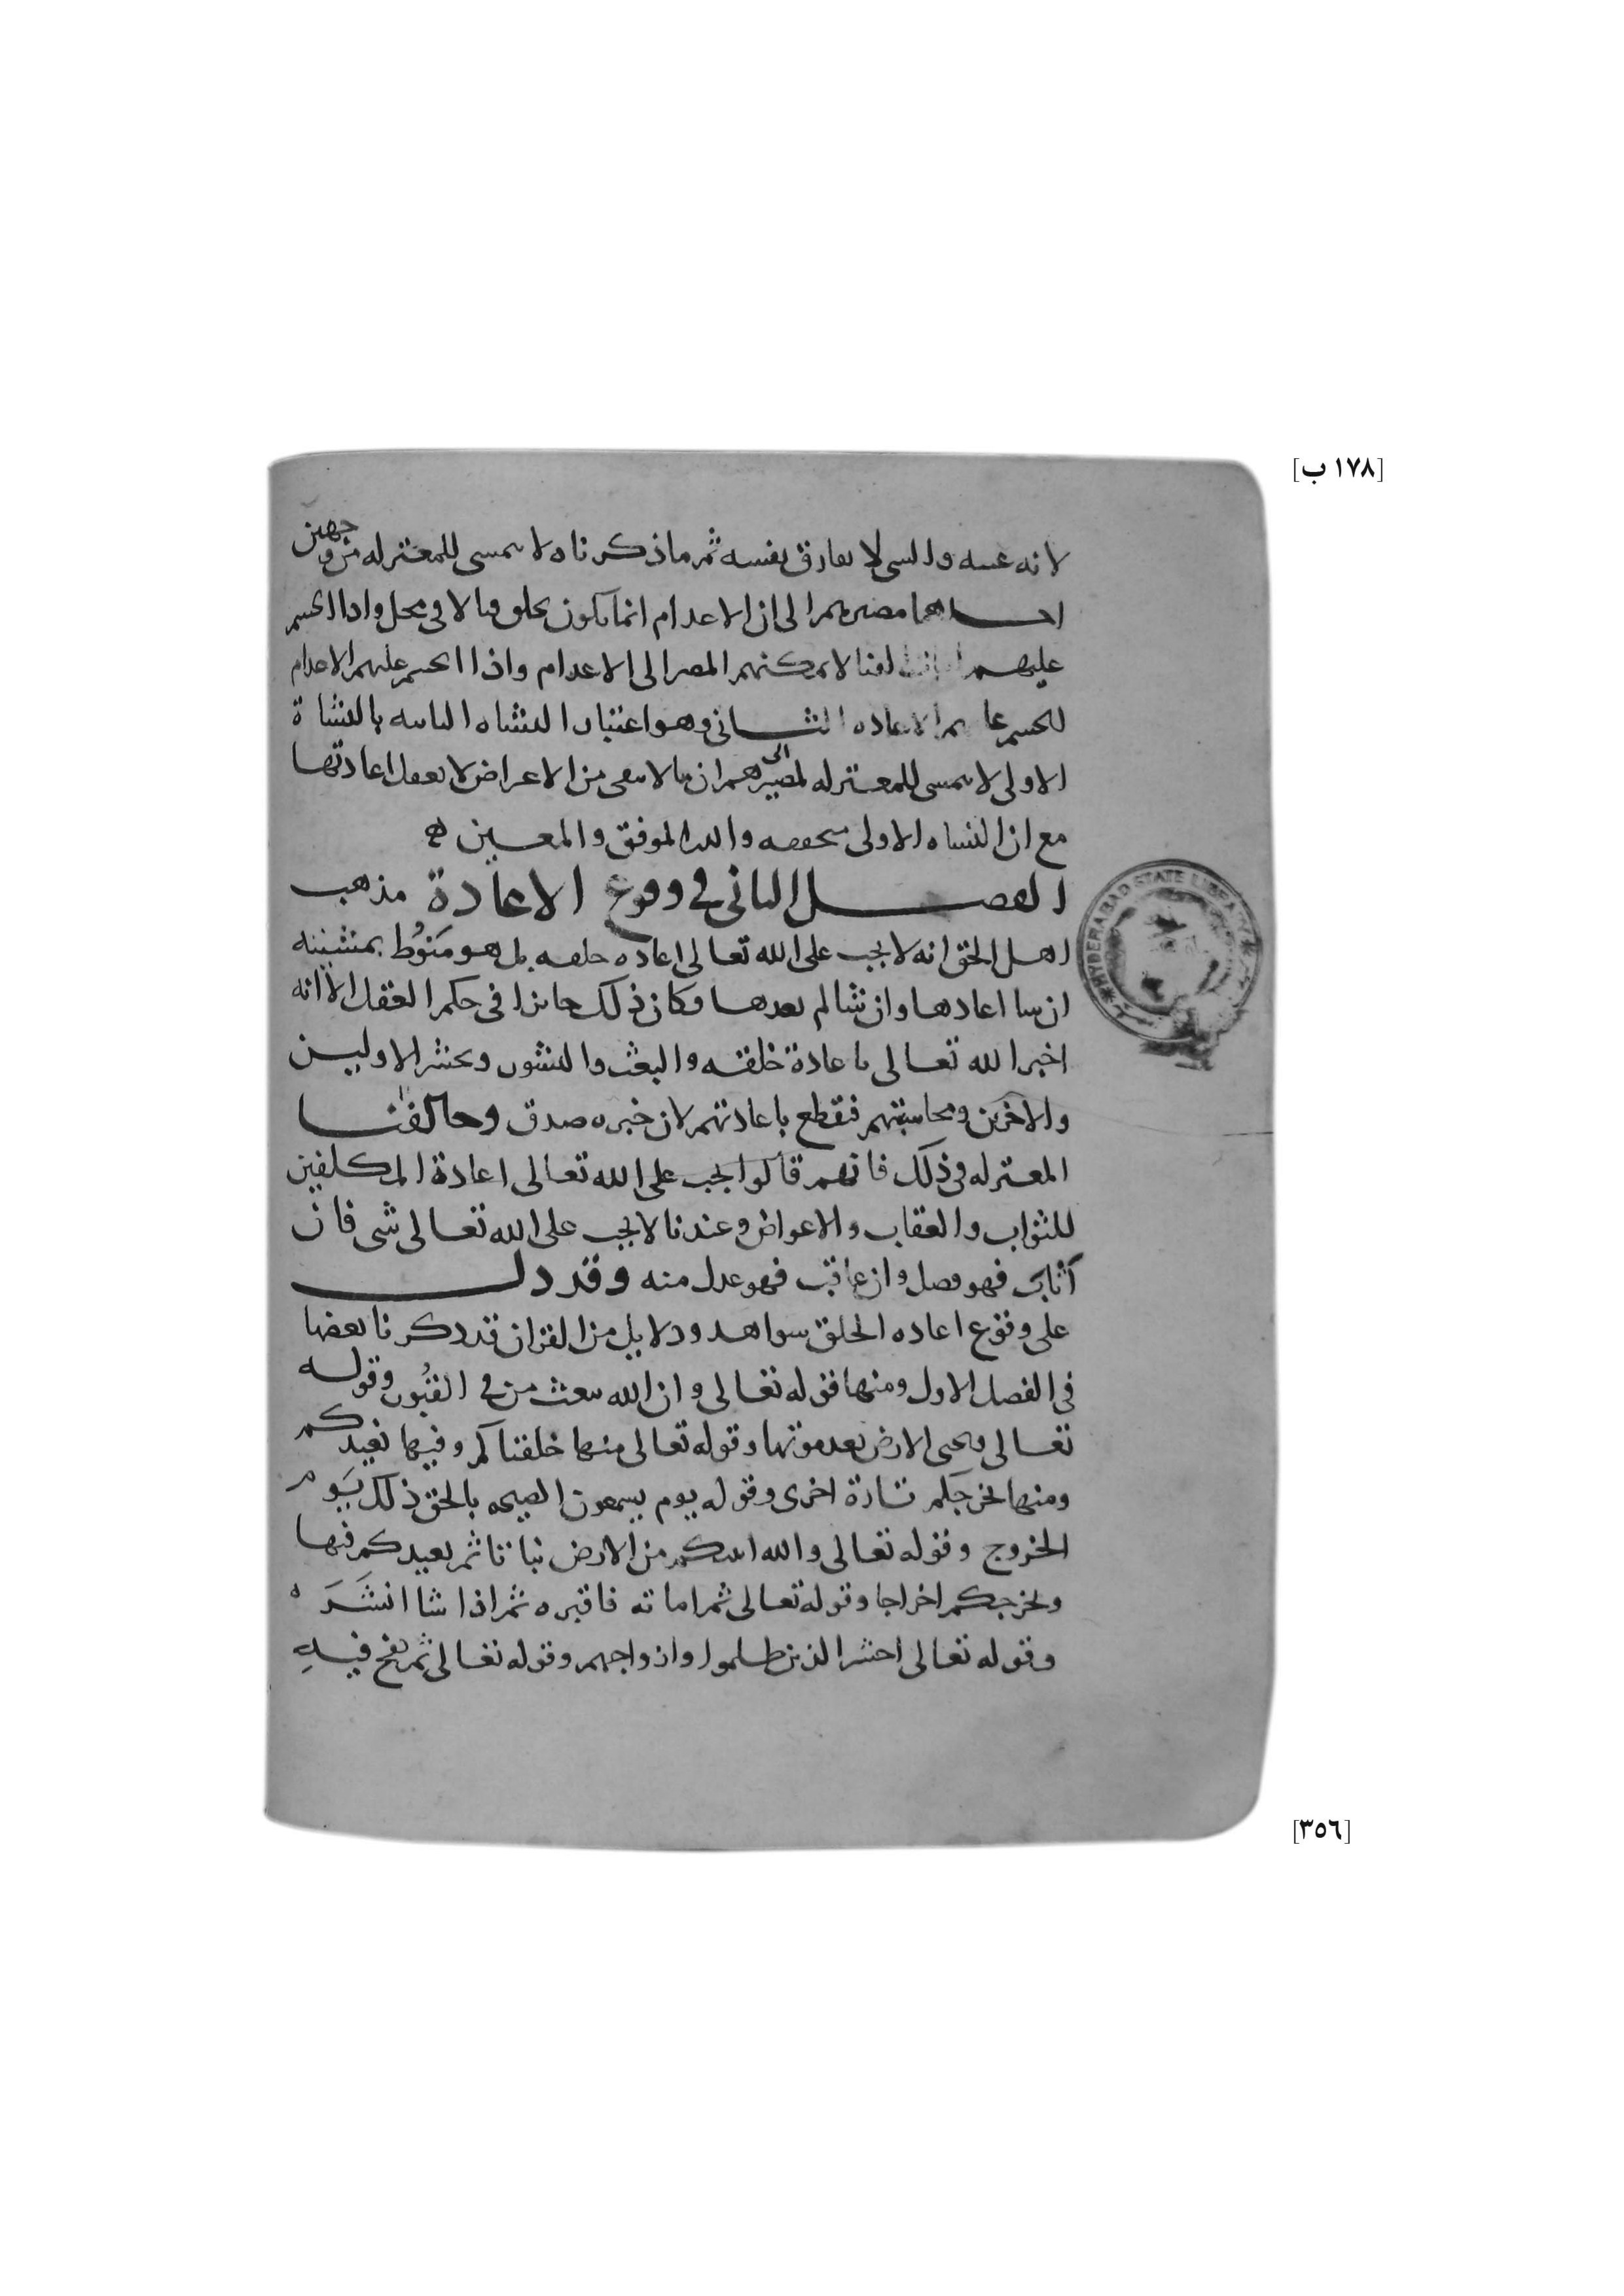 [١٧٨ ب]
لانه عينه والشى لا يفارق نفسه ثم ما ذكرناه لا يتمشى للمعتزله من وجهين
احداهما مصيرهم الى ان الاعدام انما يكون بخلق فنا لا فى محل واذا انحسم
عليهم لفنا لا يمكنهم المصير الى الاعدام واذا انحسم عليهم الاعدام
انحسم عليهم الاعاده الثانى وهو اعتبار النشاه الثانيه بالنشاة
الاولى لا يتمشى للمعتزله لمصيرهم الى ان ما لا يبقى من الاعراض لا يعقل اعادتها
مع ان النشاه الاولى متحققه والله الموفق والمعين
الفصل الثانى فى وقوع الاعادة مذهب
اهل الحق انه لا يجب على الله تعالى اعاده خلقه بل هو منوط بمشيئته
ان شا اعادها وان شا لم يعدها وكان ذلك جائزا فى حكم العقل الا انه
اخبر الله تعالى باعادة خلقه والبعث والنشور ويحشر الاولين
والاخرين ومحاسبتهم فنقطع باعادتهم لان خبره صدق وخالفنا
المعتزله فى ذلك فانهم قالوا يجب على الله تعالى اعادة المكلفين
للثواب والعقاب والاعواض وعندنا لا يجب على الله تعالى شى فان
أثاب فهو فضل وان عاقب فهو عدل منه وقد دل
على وقوع اعاده الخلق شواهد ودلايل من القران قد ذكرنا بعضها
فى الفصل الاول ومنها قوله تعالى وان الله يبعث من فى القبُور وقوله
تعالى ويحيى الارض بعد موتها وقوله تعالى منها خلقناكم وفيها نعيدكم
ومنها نخرجكم تارة اخرى وقوله يوم يسمعون الصيحه بالحق ذلك يَوم
الخروج وقوله تعالى والله انبتكم من الارض نباتا ثم يعيدكم فيها
ويخرجكم اخراجا وقوله تعالى ثم اماته فاقبره ثم اذا شا انشَرَه
وقوله تعالى احشرا الذين ظلموا وازواجهم وقوله تعالى ثم نفخ فيهِ
HYDERABAD STATE LIBRARY
[٣٥٦]